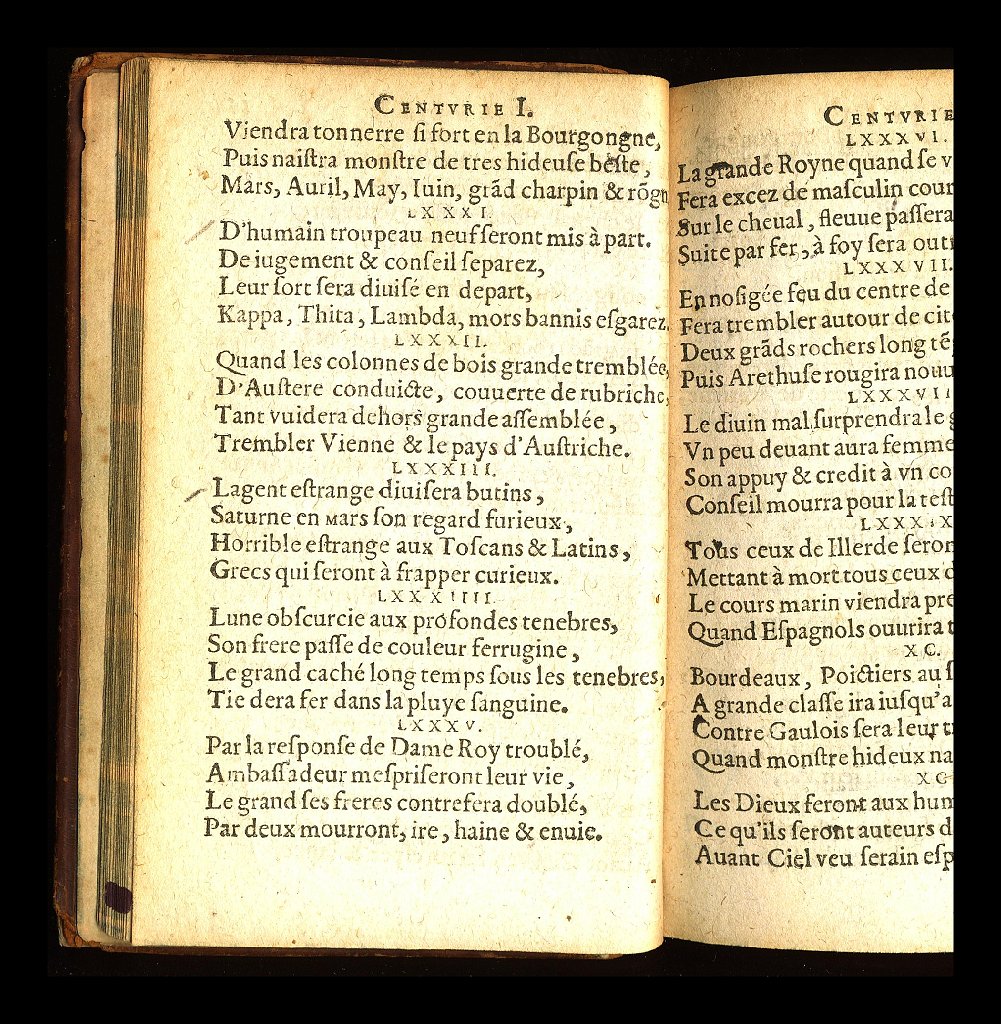 CENTVRIE I.
Viendra tonnerre ſi fort en la Bourgongne,
Puis naiſtra monſtre de tres hideuſe beſte,
Mars, Auril, May, Iuin, grãd charpin & rõgn
LXXXI.
D'humain troupeau neuf ſeront mis à part.
De iugement & conſeil ſeparez,
Leur ſort ſera diuiſé en depart,
Kappa, Thita, Lambda, mors bannis eſgarez.
LXXXII.
Quand les colonnes de bois grande tremblée,
D'Auſtere conduicte, couuerte de rubriche,
Tant vuidera dehors grande aſſemblée,
Trembler Vienne & le pays d'Auſtriche.
LXXXIII.
Lagent eſtrange diuiſera butins,
Saturne en Mars ſon regard furieux,
Horrible eſtrange aux Toſcans & Latins,
Grecs qui ſeront à frapper curieux.
LXXXIIII.
Lune obſcurcie aux profondes tenebres,
Son frere paſſe de couleur ferrugine,
Le grand caché long temps ſous les tenebres,
Tie dera fer dans la pluye ſanguine.
LXXXV.
Par la reſponſe de Dame Roy troublé,
Ambaſſadeur meſpriſeront leur vie,
Le grand ſes freres contrefera doublé,
Par deux mourront, ire, haine & enuie.
CENTVRIE
LXXXVI.
La grande Royne quand ſe v
Fera excez de maſculin cour
Sur le cheual, fleuue paſſera
Suite par fer, à foy ſera outr
LXXXVII.
Ennoſigée feu du centre de
Fera trembler autour de cit
Deux grãds rochers long tẽ
Puis Arethuſe rougira nouu
LXXXVII
Le diuin mal ſurprendra le g
Vn peu deuant aura femme
Son appuy & credit à vn co
Conſeil mourra pour la teſt
LXXXIX
Tous ceux de Illerde ſeron
Mettant à mort tous ceux d
Le cours marin viendra pre
Quand Eſpagnols ouurira t
XC.
Bourdeaux, Poictiers au ſ
A grande claſſe ira iuſqu'a
Contre Gaulois ſera leur t
Quand monſtre hideux na
XC
Les Dieux feront aux hum
Ce qu'ils ſeront auteurs d
Auant Ciel veu ſerain eſp